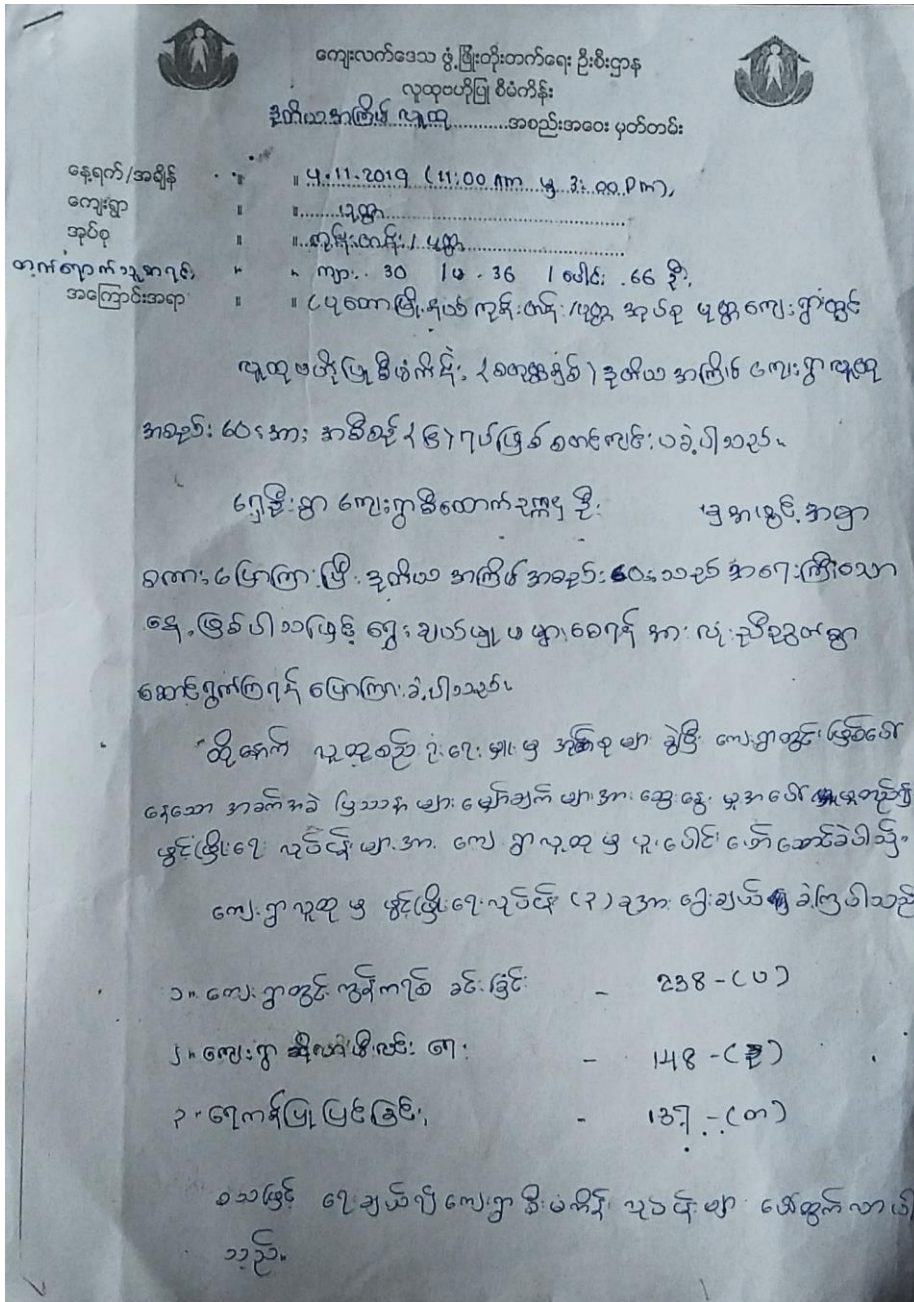 ကျေးလက်ဒေသ ဖွံ့ဖြိုးတိုးတက်ရေး ဦးစီးဌာန
လူထုဗဟိုပြု စီမံကိန်း
ဒုတိယအကြိမ် လူထု..........အစည်းအဝေး မှတ်တမ်း
နေ့ရက်/အချိန် ။ ။ 4.11.2019 (11:00 Am မှ 3:00 Pm)
ကျေးရွာ ။ ။
အုပ်စု ။ ။ ကုန်းတန်း /
တက်ရောက်သူစာရင်း ။ ။ ကျား. 30 / မ - 36 / ပေါင်း. 66 ဦး
အကြောင်းအရာ ။ ။ ပုတောမြို့နယ် ကုန်းတန်း အုပ်စု ကျေးရွာတွင်
လူထုဗဟိုပြုစီမံကိန်း (စတုတ္ထနှစ်) ဒုတိယအကြိမ် ကျေးရွာလူထု
အစည်းအဝေးအား အစီစဉ် (၆) ရပ်ဖြင့် စတင်ကျင်းပခဲ့ပါသည်။
ရှေ့ဦးစွာ ကျေးရွာစီထောက်ဥက္ကဌ ဦး မှ အဖွင့်အမှာ
စကားပြောကြားပြီး ဒုတိယအကြိမ်အစည်းဝေးသည် အရေးကြီးသော
နေ့ဖြစ်ပါသဖြင့် ရွေးချယ်မှု မမှားစေရန် အားလုံးညီညွတ်စွာ
ဆောင်ရွက်ကြရန် ပြောကြားခဲ့ပါသည်။
ထို့နောက် လူထုစည်းရုံးရေးမှူးမှ အုပ်စုများ ခွဲပြီး ကျေးရွာတွင်းဖြစ်ပေါ်
နေသော အခက်အခဲ ပြဿနာများ မျှော်ချက်များအား ဆွေးနွေးမှုအပေါ် မူတည်၍
ဖွင့်ဖြိုးရေး လုပ်ငန်းများအား ကျေးရွာလူထုမှ ပူးပေါင်းဖော်ဆောင်ခဲ့ပါသည်။
ကျေးရွာလူထုမှ ဖွင့်ဖြိုးရေးလုပ်ငန်း (၃) ခုအား ရွေးချယ်ခဲ့ကြပါသည်
၁။ ကျေးရွာတွင်း ကွန်ကရစ် ခင်းခြင်း - 238 - (ပ)
၂။ ကျေးရွာ မီးလင်းရေး - 148 - (ဒု)
၃။ ရေကန်ပြုပြင်ခြင်း - 137 - (တ)
စသဖြင့် ရွေးချယ်၍ ကျေးရွာစီမံကိန်း လုပ်ငန်းများ ပေါ်ထွက်လာပါ
သည်။